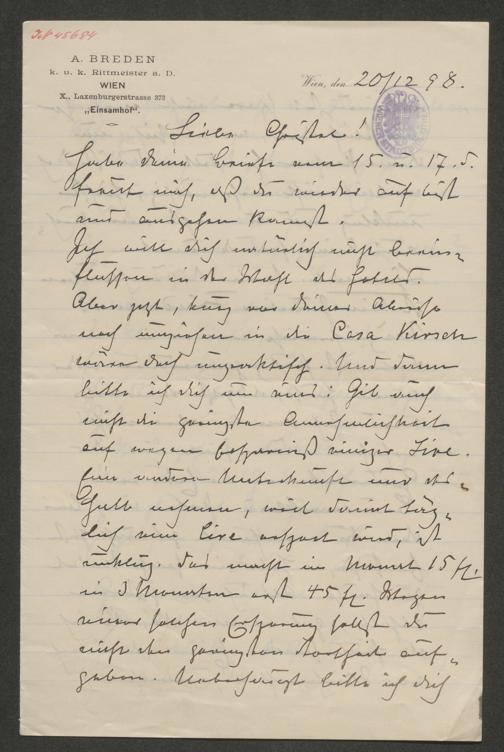 IN 45684
A. BREDEN
k. u. k. Rittmeister a. D.
WIEN
X., Laxenburgerstrasse 372
„Einsamhof“.
Wien, den 20/12 98.
Liebe Christel!
Habe deine Briefe vom 15. u. 17. d.
Freut mich, daß du wieder auf bist
und ausgehen kannst.
Ich will dich natürlich nicht beein-
flussen in der Wahl des Hotels.
Aber jetzt, kurz vor deiner Abreise
noch umziehen in die Casa Kirsch
wäre doch unpraktisch. Und dann
bitte ich dich um eins: Gib auch
nicht die geringste Annehmlichkeit
auf wegen Ersparniß einiger Lire.
Eine andere Unterkunft nur des-
halb nehmen, weil damit täg-
lich eine Lire erspart wird, ist
unklug. Das macht im Monat 15 fl.
in 3 Monaten erst 45 fl. Wegen
einer solchen Ersparung sollst du
nicht den geringsten Vortheil auf-
geben. Überhaupt bitte ich dich